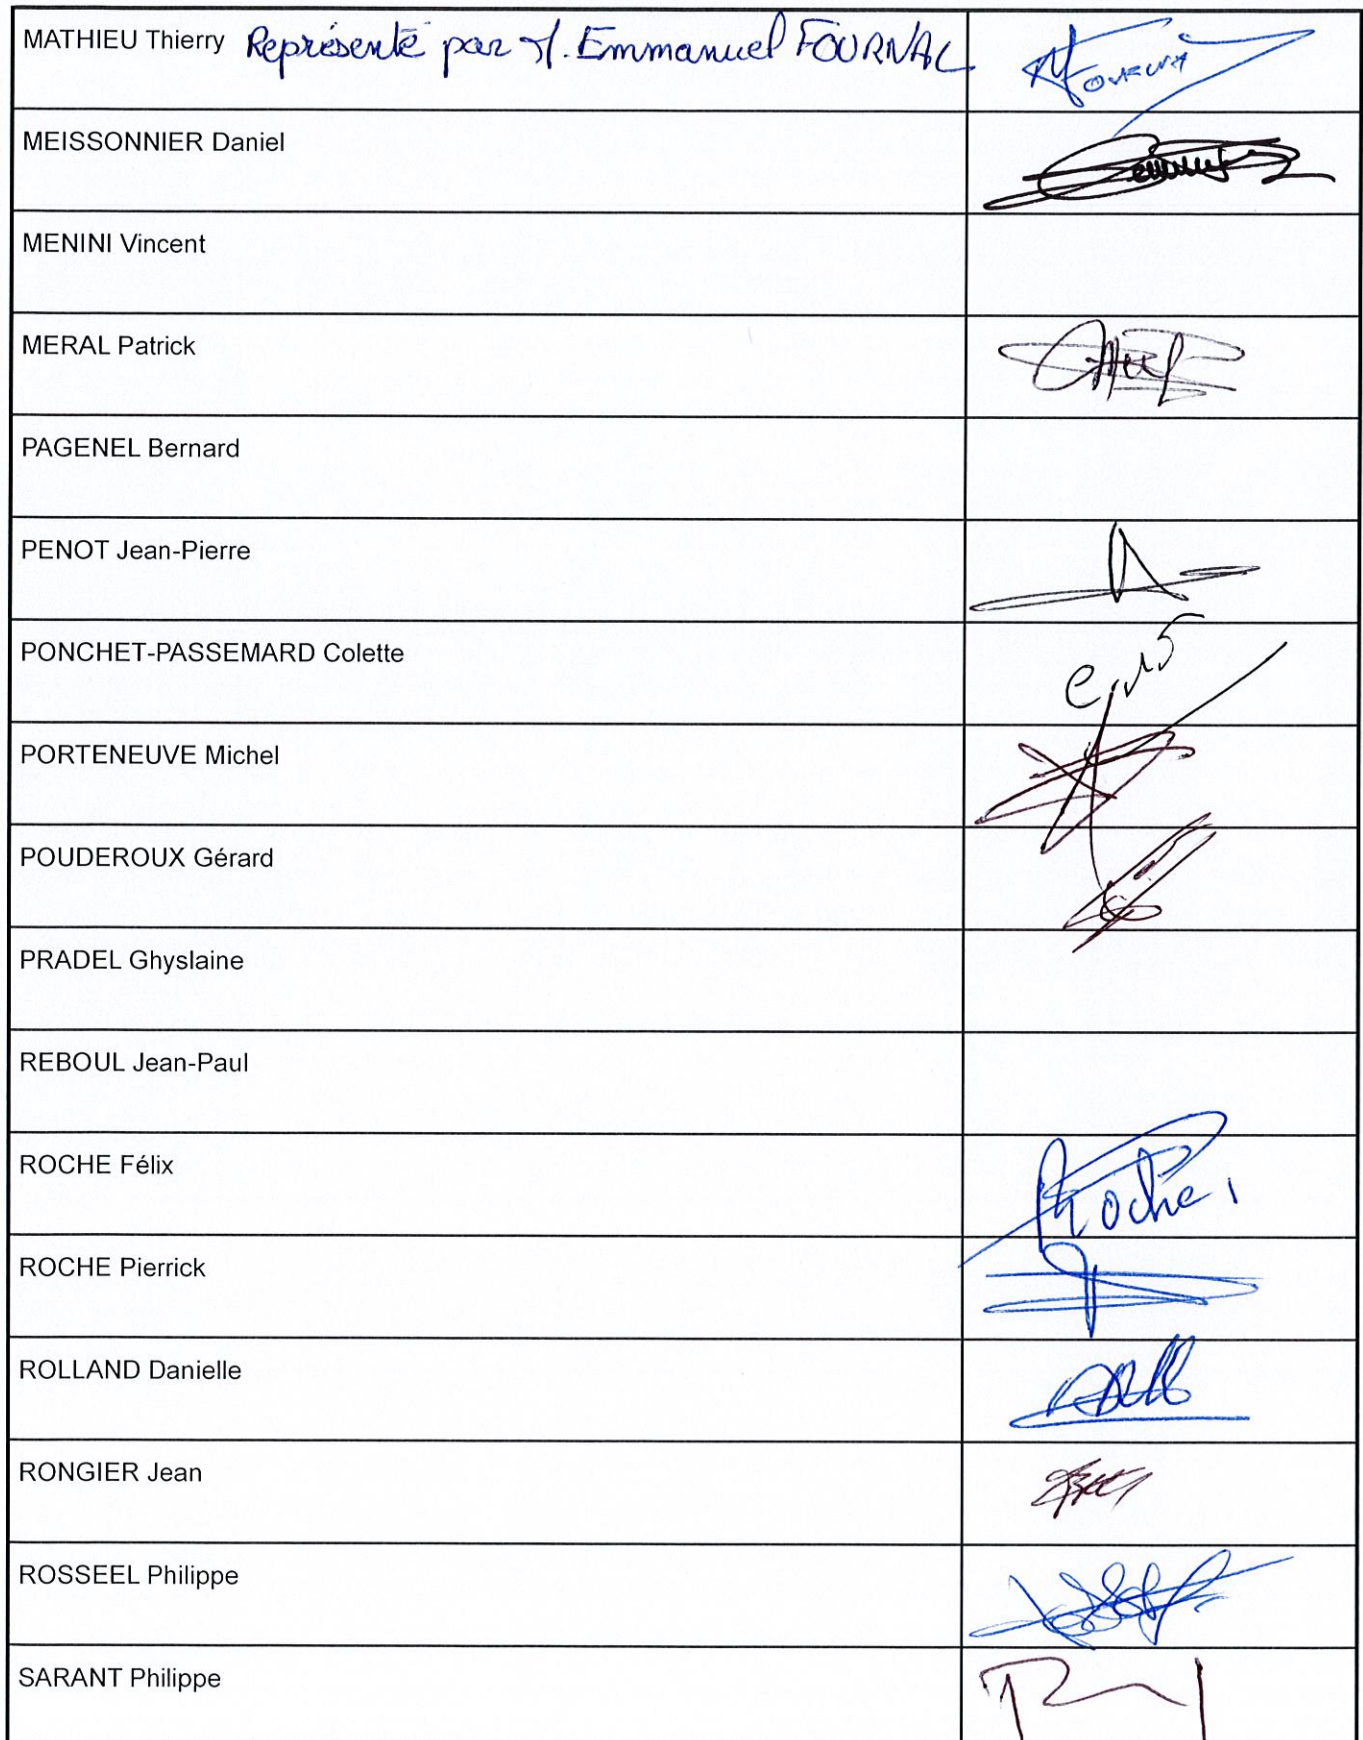 MATHIEU Thierry Représenté par M. Emmanuel FOURNAL
MEISSONNIER Daniel
MENINI Vincent
MERAL Patrick
PAGENEL Bernard
PENOT Jean-Pierre
PONCHET-PASSEMARD Colette
PORTENEUVE Michel
POUDEROUX Gérard
PRADEL Ghyslaine
REBOUL Jean-Paul
ROCHE Félix Roche
ROCHE Pierrick
ROLLAND Danielle
RONGIER Jean
ROSSEEL Philippe
SARANT Philippe